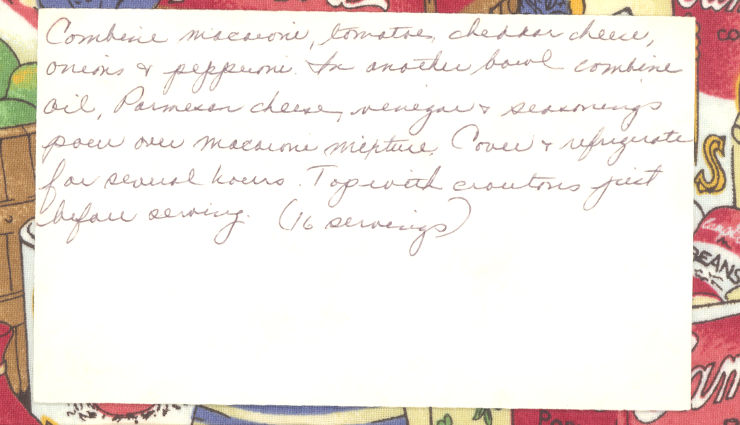 Combine macaroni, tomatoes, cheddar cheese,
onions & pepperoni. In another bowl combine
oil, Parmesan cheese, vinegar & seasonings
pour over macaroni mixture. Cover & refrigerate
for several hours. Top with croutons just
before serving. (16 servings)
S
Campbell's
BEANS